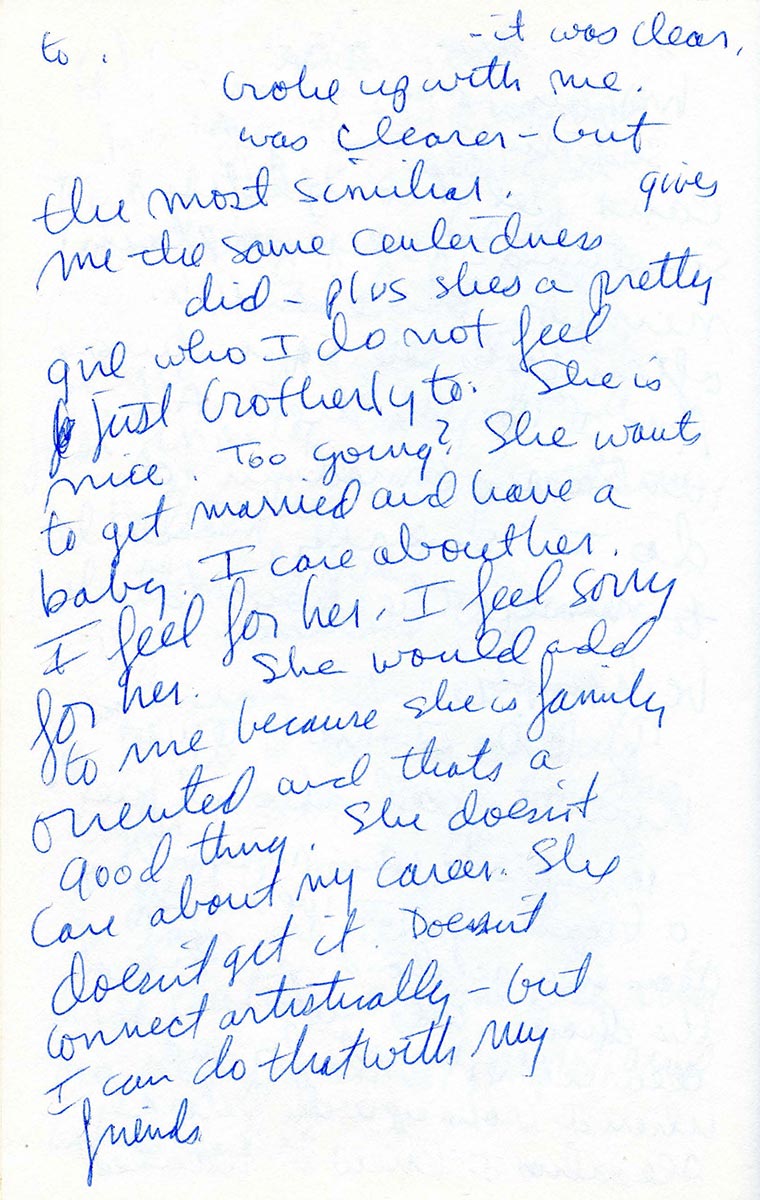 to. - it was clear,
broke up with me.
was clearer - but
the most similiar. gives
me the same centerdness
did - plus shes a pretty
girl who I do not feel
just brotherly to. She is
nice. Too young? She wants
to get married and have a
baby. I care about her.
I feel for her. I feel sorry
for her. She would add
to me because she is family
oriented and thats a
good thing. She doesn't
care about my career. She
doesn't get it. Doesn't
connect artistically - but
I can do that with my
friends